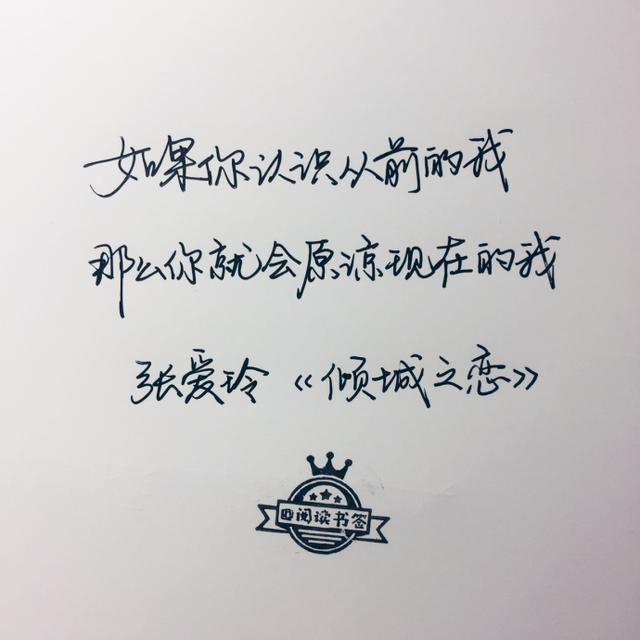 如果你认识从前的我
那么你就会原谅现在的我
张爱玲《倾城之恋》
@阅读书签